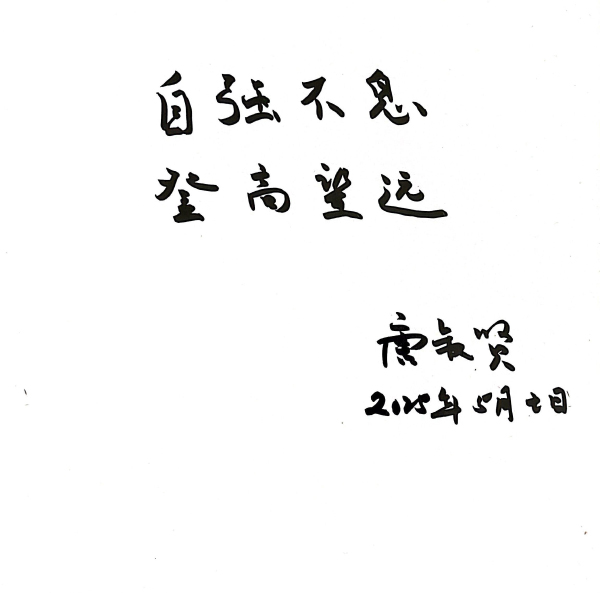 自强不息
登高望远
唐叔贤
2025年5月七日